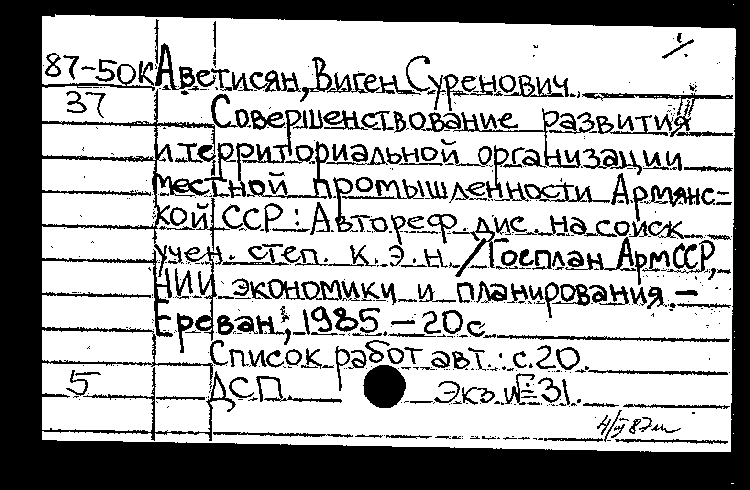 87-50К Аветисян, Виген Суренович.
37 Совершенствование развития
и территориальной организации
местной промышленности Армянс=
кой ССР : Автореф. дис. на соиск.
учен. степ. к. э. н. / Госплан АрмССР,
НИИ экономики и планирования. –
Ереван, 1985. – 20 с.
Список работ авт.: с. 20.
5 ДСП. Экз. № 31.